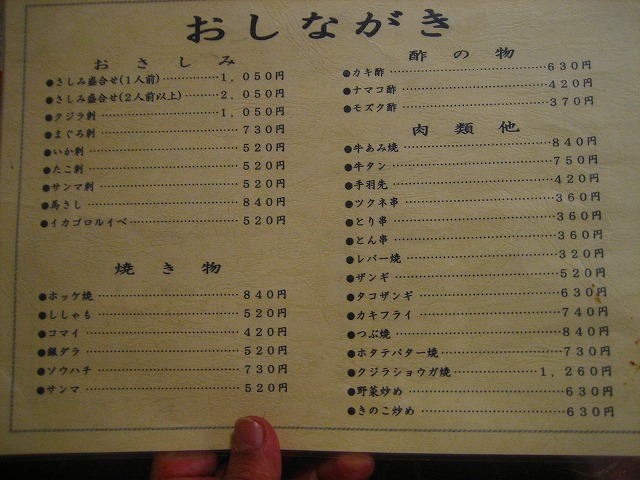 おしながき
おさしみ
●さしみ盛合せ(1人前)…………1,050円
●さしみ盛合せ(2人前以上)………2,050円
●クジラ刺……………………1,050円
●まぐろ刺……………………730円
●いか刺………………………520円
●たこ刺………………………520円
●サンマ刺……………………520円
●馬さし………………………840円
●イカゴロルイベ………………520円
焼き物
●ホッケ焼……………………840円
●ししゃも……………………520円
●コマイ………………………420円
●銀ダラ………………………520円
●ソウハチ……………………730円
●サンマ………………………520円
酢の物
●カキ酢………………………630円
●ナマコ酢……………………420円
●モズク酢……………………370円
肉類他
●牛あみ焼……………………840円
●牛タン………………………750円
●手羽先………………………420円
●ツクネ串……………………360円
●とり串………………………360円
●とん串………………………360円
●レバー焼……………………320円
●ザンギ………………………520円
●タコザンギ…………………630円
●カキフライ…………………740円
●つぶ焼………………………840円
●ホタテバター焼………………730円
●クジラショウガ焼……………1,260円
●野菜炒め……………………630円
●きのこ炒め…………………630円